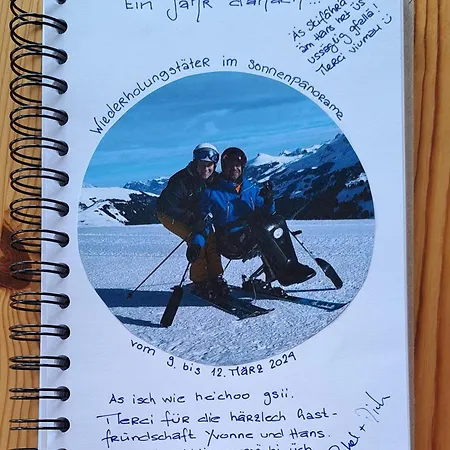 Ein Jahr danach...
Äs Skifahre
am Hans het üs
ussegüg gfalle!
Merci viumau ☺
Wiederholungstäter im Sonnenpanorama
vom 9. bis 12. März 2024
As isch wie heichoo gsii.
Merci für die härzlech Gast-
fründschaft Yvonne und Hans.